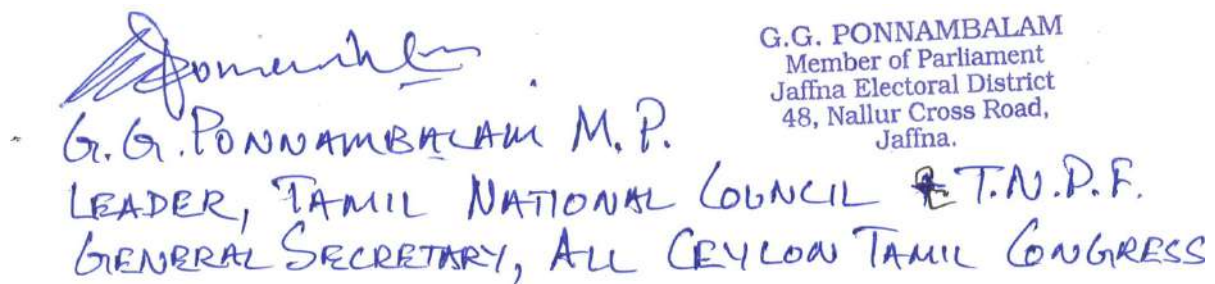 G.G. PONNAMBALAM
Member of Parliament
Jaffna Electoral District
48, Nallur Cross Road,
Jaffna.
G.G. PONNAMBALAM M.P.
LEADER, TAMIL NATIONAL COUNCIL & T.N.P.F.
GENERAL SECRETARY, ALL CEYLON TAMIL CONGRESS